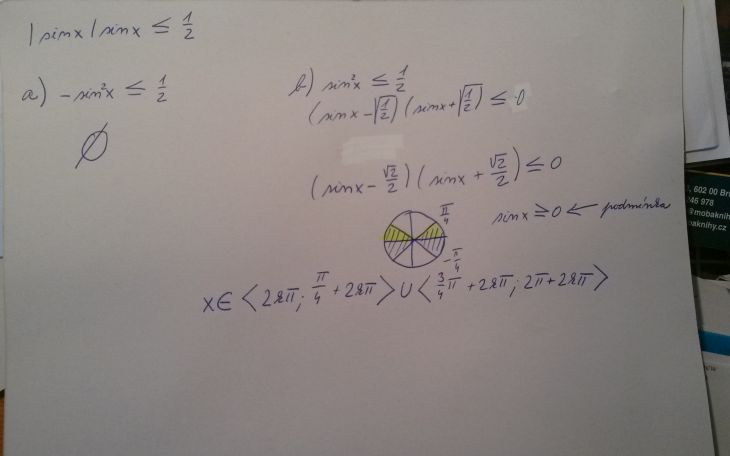 |sinx|sinx ≤ 1/2
a) -sin²x ≤ 1/2
∅
b) sin²x ≤ 1/2
(sinx - √(1/2)) (sinx + √(1/2)) ≤ 0
(sinx - √2/2) (sinx + √2/2) ≤ 0
sinx ≥ 0 ← podmínka
π/4
-π/4
x ∈ <2kπ; π/4 + 2kπ> ∪ <3/4 π + 2kπ; 2π + 2kπ>
, 602 00 Br
46 978
@mobaknihy
aknihy.cz